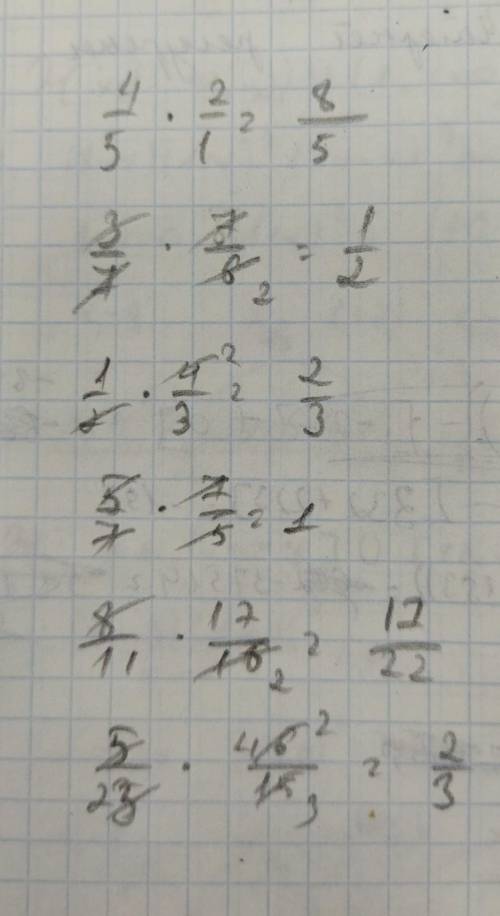 4/5 · 2/1 = 8/5
3/7 · 7/6 2 = 1/2
1/2 · 4 2/3 = 2/3
5/7 · 7/5 = 1
8/11 · 17/16 2 = 17/22
5/23 · 46 2/15 3 = 2/3